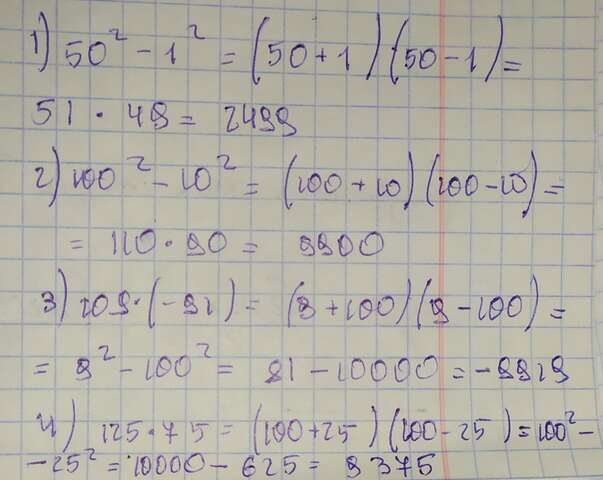 1) 50² - 1² = (50 + 1)(50 - 1) =
51 · 49 = 2499
2) 100² - 10² = (100 + 10)(100 - 10) =
= 110 · 90 = 9900
3) 109 · (-91) = (9 + 100)(9 - 100) =
= 9² - 100² = 81 - 10000 = -9919
4) 125 · 75 = (100 + 25)(100 - 25) = 100² -
- 25² = 10000 - 625 = 9375